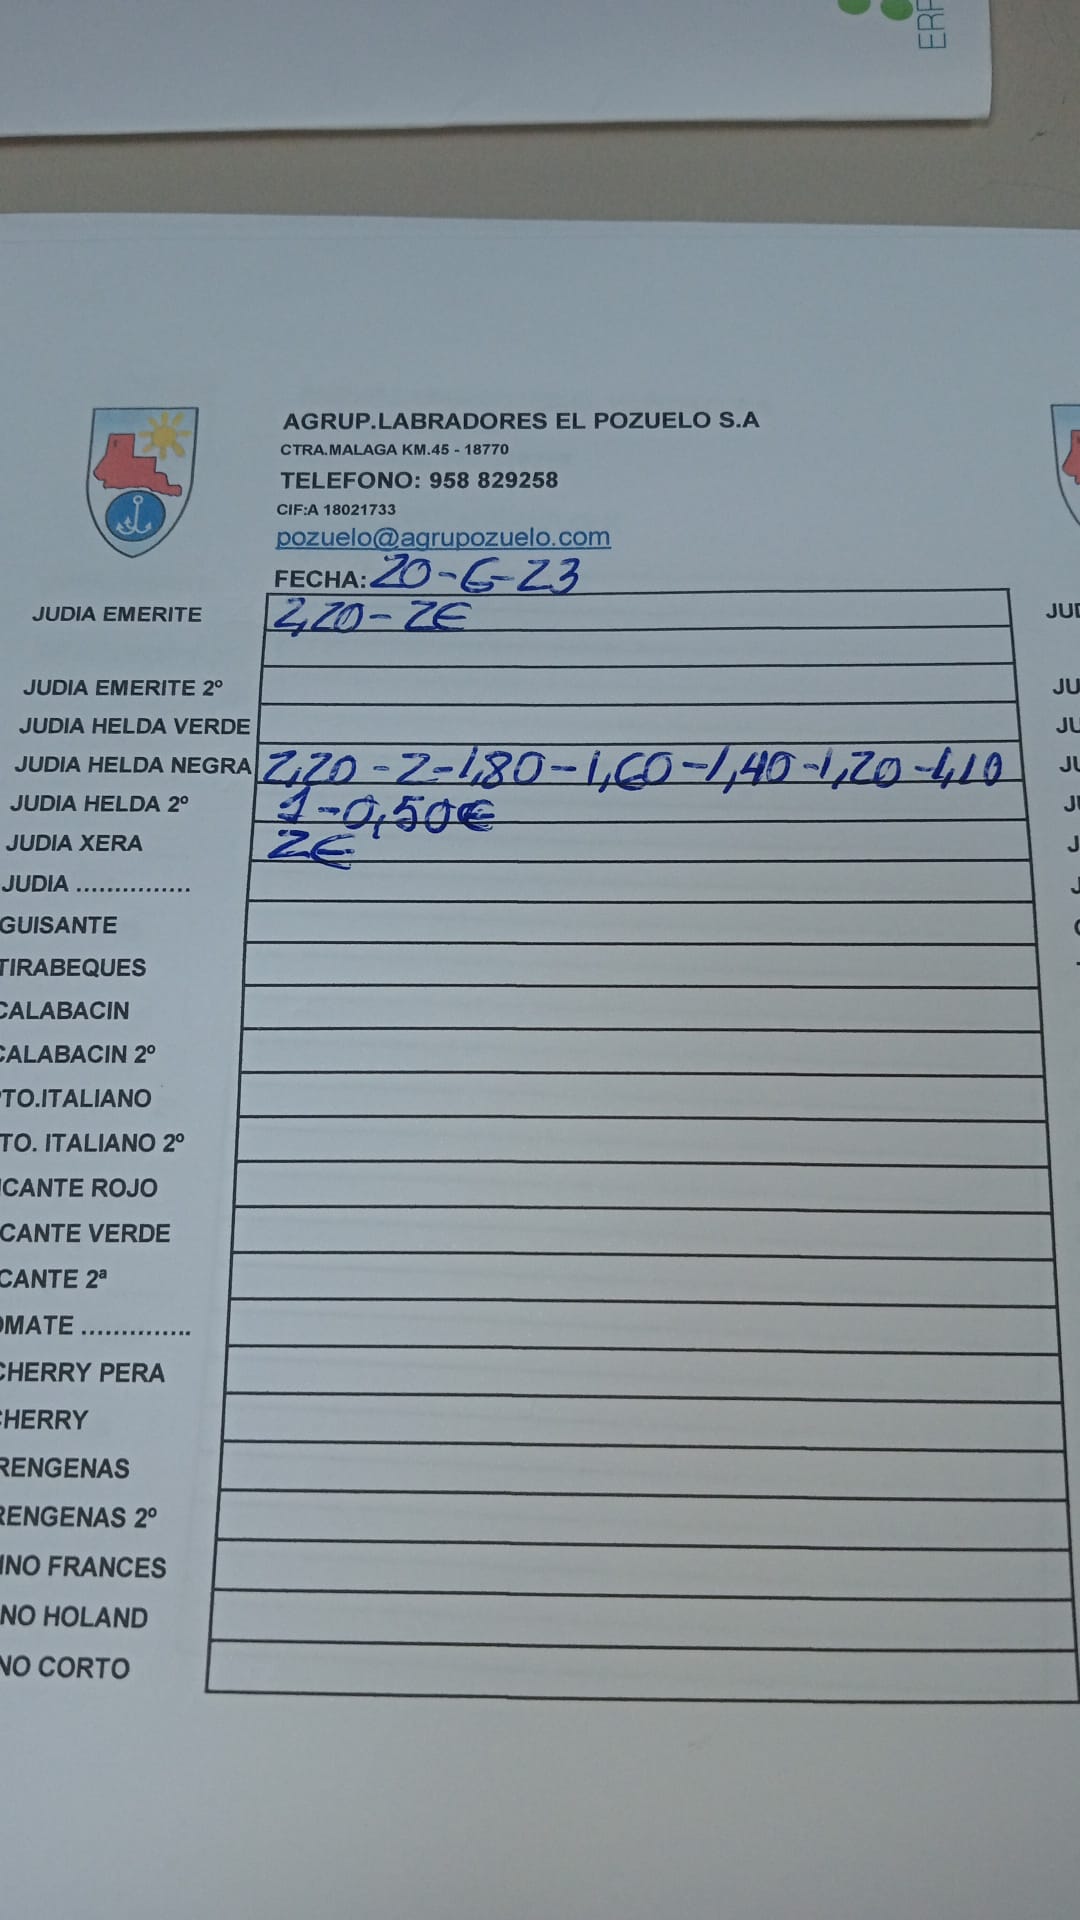 ERF
AGRUP.LABRADORES EL POZUELO S.A
CTRA.MALAGA KM.45 - 18770
TELEFONO: 958 829258
CIF:A 18021733
pozuelo@agrupozuelo.com
FECHA: 20-6-23
JUDIA EMERITE 2,20- 2€ JUD
JUDIA EMERITE 2º JU
JUDIA HELDA VERDE JU
JUDIA HELDA NEGRA 2,20 - 2 - 1,80 - 1,60 - 1,40 - 1,20 - 1,10 JU
JUDIA HELDA 2º 1-0,50€ JU
JUDIA XERA 2€ J
JUDIA ............... J
GUISANTE
TIRABEQUES
CALABACIN
CALABACIN 2º
TO.ITALIANO
TO. ITALIANO 2º
CANTE ROJO
CANTE VERDE
CANTE 2ª
OMATE ..............
CHERRY PERA
CHERRY
RENGENAS
RENGENAS 2º
INO FRANCES
NO HOLAND
NO CORTO